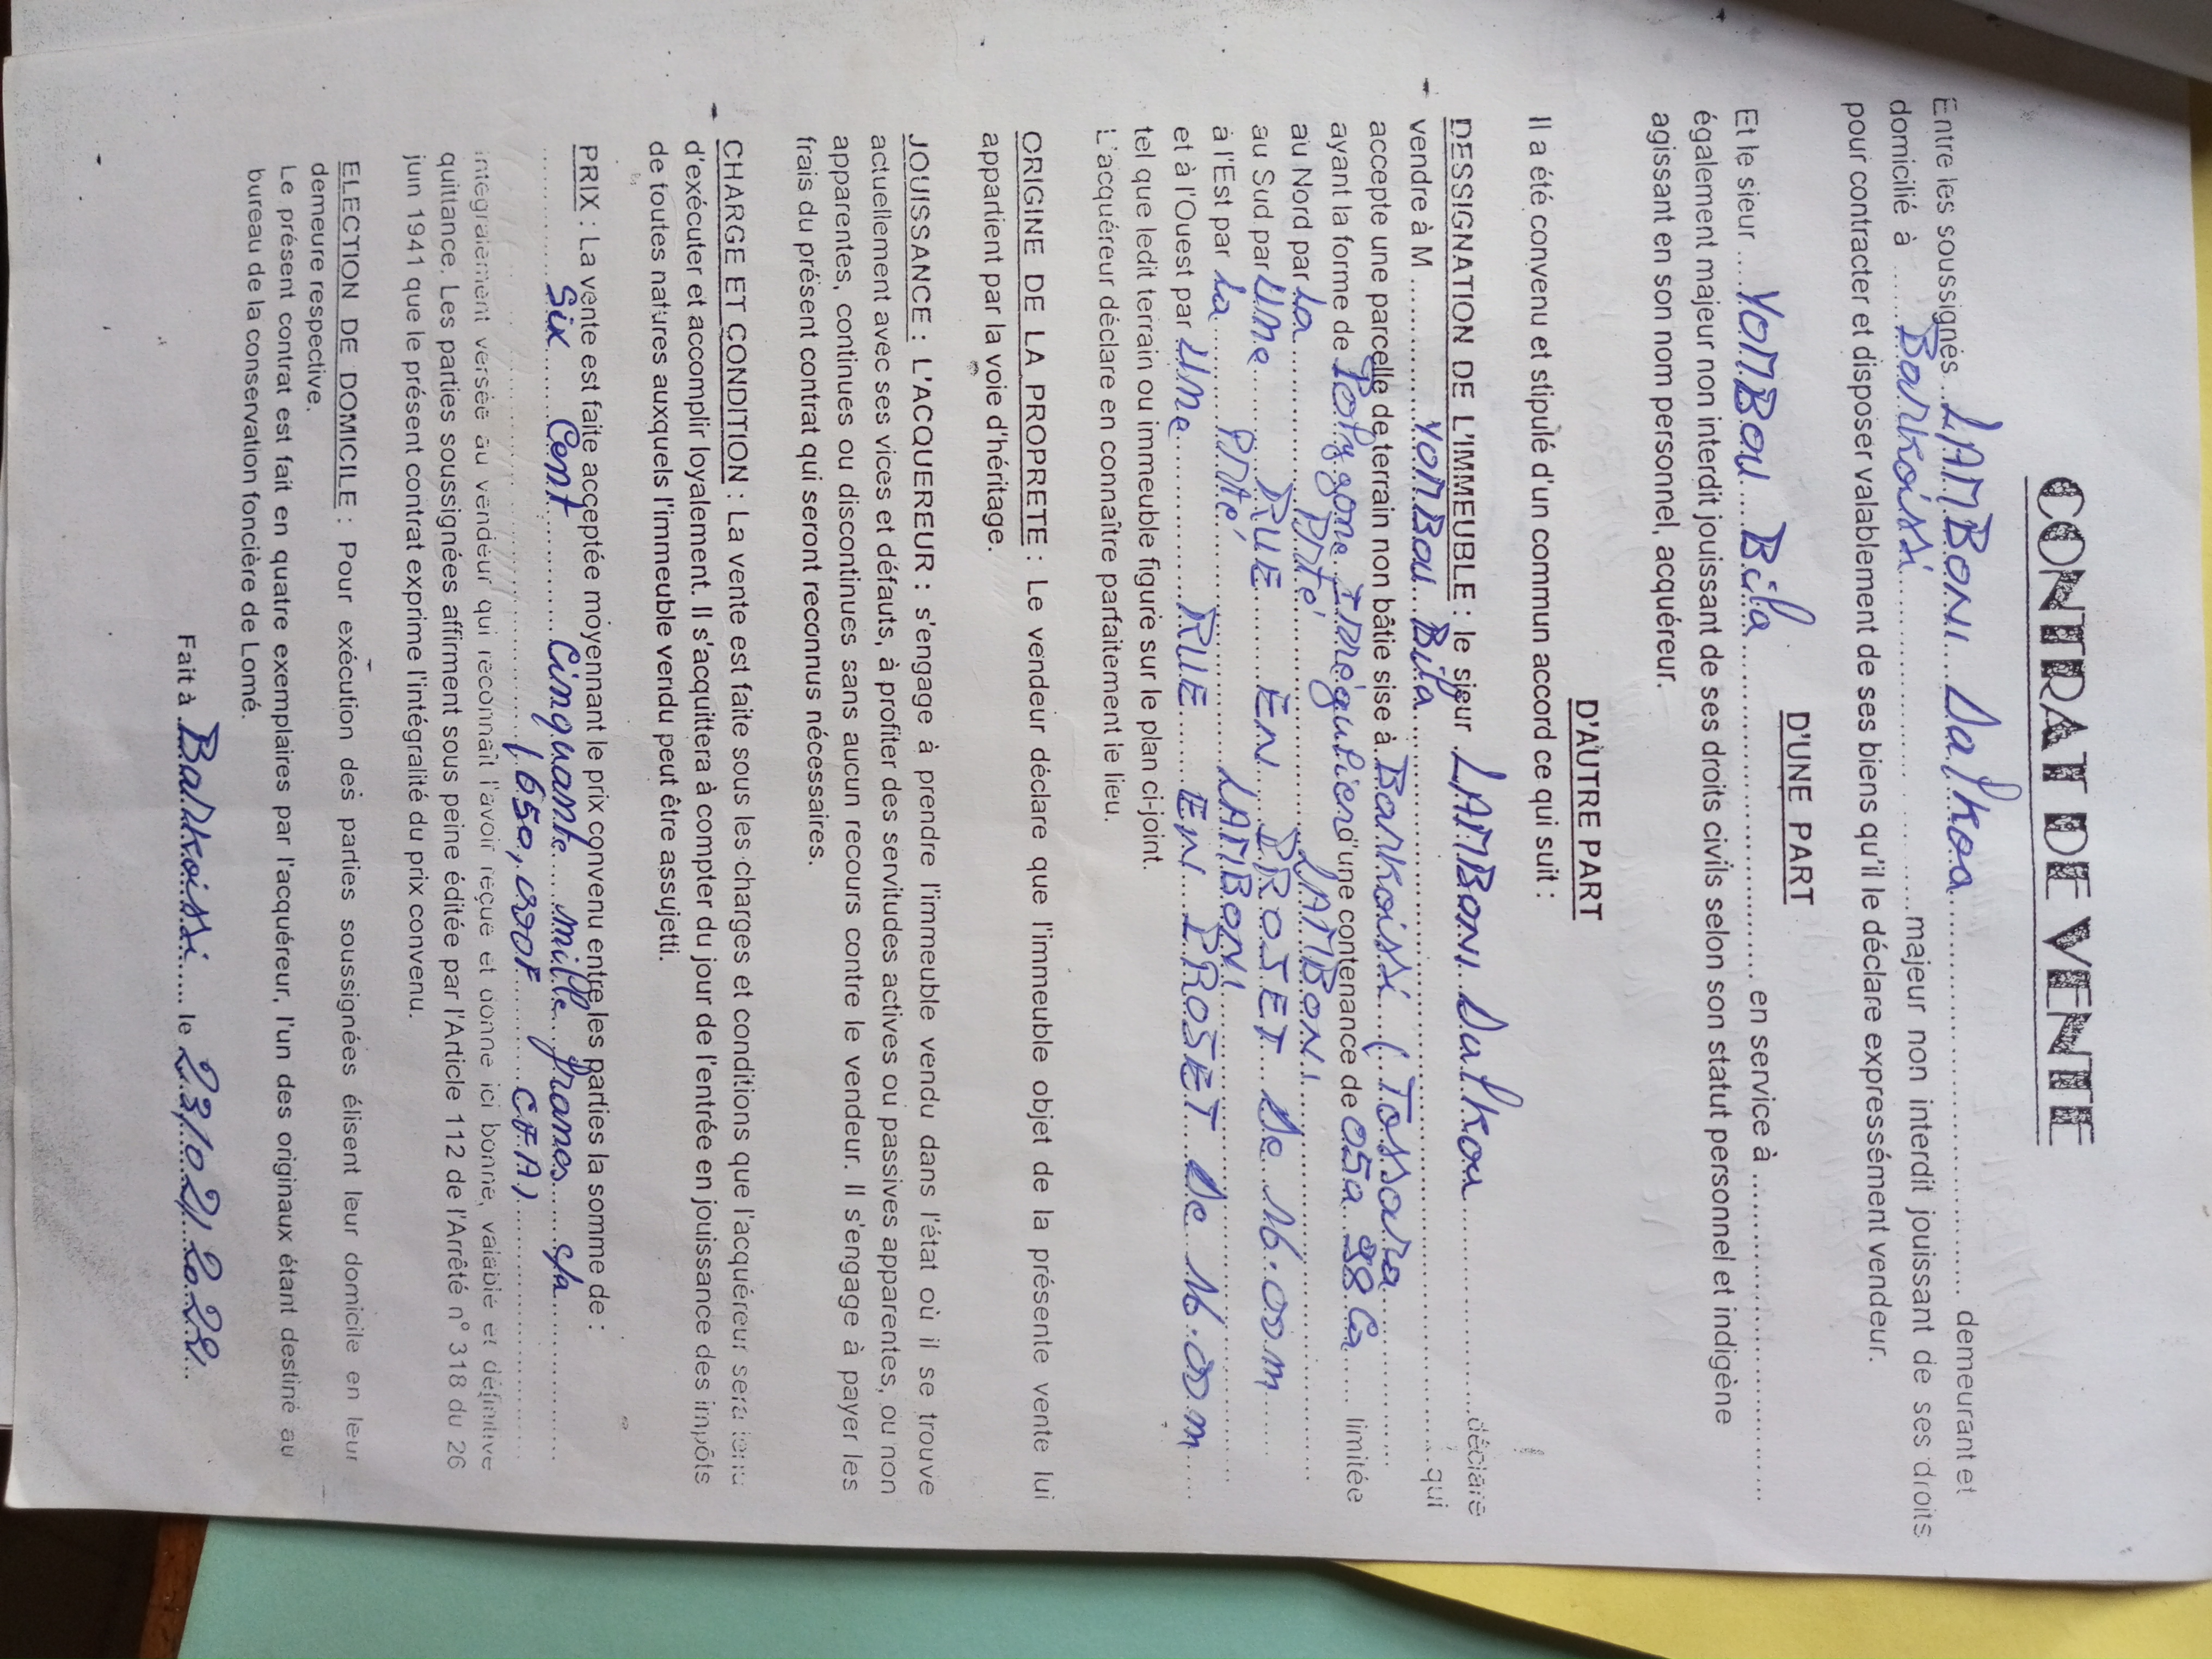 CONTRAT DE VENTE
Entre les soussignés ..LAMBONI....Dalkoa.......................... demeurant et
domicilié à ......Barkoissi.......................................majeur non interdit jouissant de ses droits
pour contracter et disposer valablement de ses biens qu'il le déclare expressément vendeur.
D'UNE PART
Et le sieur ....YOMBOU....Bila.......................................... en service à .......................................
également majeur non interdit jouissant de ses droits civils selon son statut personnel et indigène
agissant en son nom personnel, acquéreur.
D'AUTRE PART
Il a été convenu et stipulé d'un commun accord ce qui suit :
DESSIGNATION DE L'IMMEUBLE : le sieur .LAMBONI..Dalkoa..........................déclare
vendre à M .................YOMBOU...Bila.......................................................................qui
accepte une parcelle de terrain non bâtie sise à .Barkoissi...(.Tossora....................
ayant la forme de Polygone..Irrégulier d'une contenance de 05a..98Ca..... limitée
au Nord par La....................Prté.........................LAMBONI..................................
au Sud par Une.........RUE.......EN....PROJET....de..16.00m......
à l'Est par La...........Prté........................LAMBONI..............................................
et à l'Ouest par Une.................RUE........EN...PROJET....de..16.00m.....
tel que ledit terrain ou immeuble figure sur le plan ci-joint.
L'acquéreur déclare en connaître parfaitement le lieu.
ORIGINE DE LA PROPRETE : Le vendeur déclare que l'immeuble objet de la présente vente lui
appartient par la voie d'héritage.
JOUISSANCE : L'ACQUEREUR : s'engage à prendre l'immeuble vendu dans l'état où il se trouve
actuellement avec ses vices et défauts, à profiter des servitudes actives ou passives apparentes, ou non
apparentes, continues ou discontinues sans aucun recours contre le vendeur. Il s'engage à payer les
frais du présent contrat qui seront reconnus nécessaires.
CHARGE ET CONDITION : La vente est faite sous les charges et conditions que l'acquéreur sera tenu
d'exécuter et accomplir loyalement. Il s'acquittera à compter du jour de l'entrée en jouissance des impôts
de toutes natures auxquels l'immeuble vendu peut être assujetti.
PRIX : La vente est faite acceptée moyennant le prix convenu entre les parties la somme de :
..............Six........Cent..............Cinquante.....mille...francs......cfa...................
(650,000F.........C.F.A)...........................
intégralement versée au vendeur qui reconnaît l'avoir reçue et donne ici bonne, valable et définitive
quittance. Les parties soussignées affirment sous peine éditée par l'Article 112 de l'Arrêté n° 318 du 26
juin 1941 que le présent contrat exprime l'intégralité du prix convenu.
ELECTION DE DOMICILE : Pour exécution des parties soussignées élisent leur domicile en leur
demeure respective.
Le présent contrat est fait en quatre exemplaires par l'acquéreur, l'un des originaux étant destiné au
bureau de la conservation foncière de Lomé.
Fait à .Barkoissi..... le 23/02/2022...